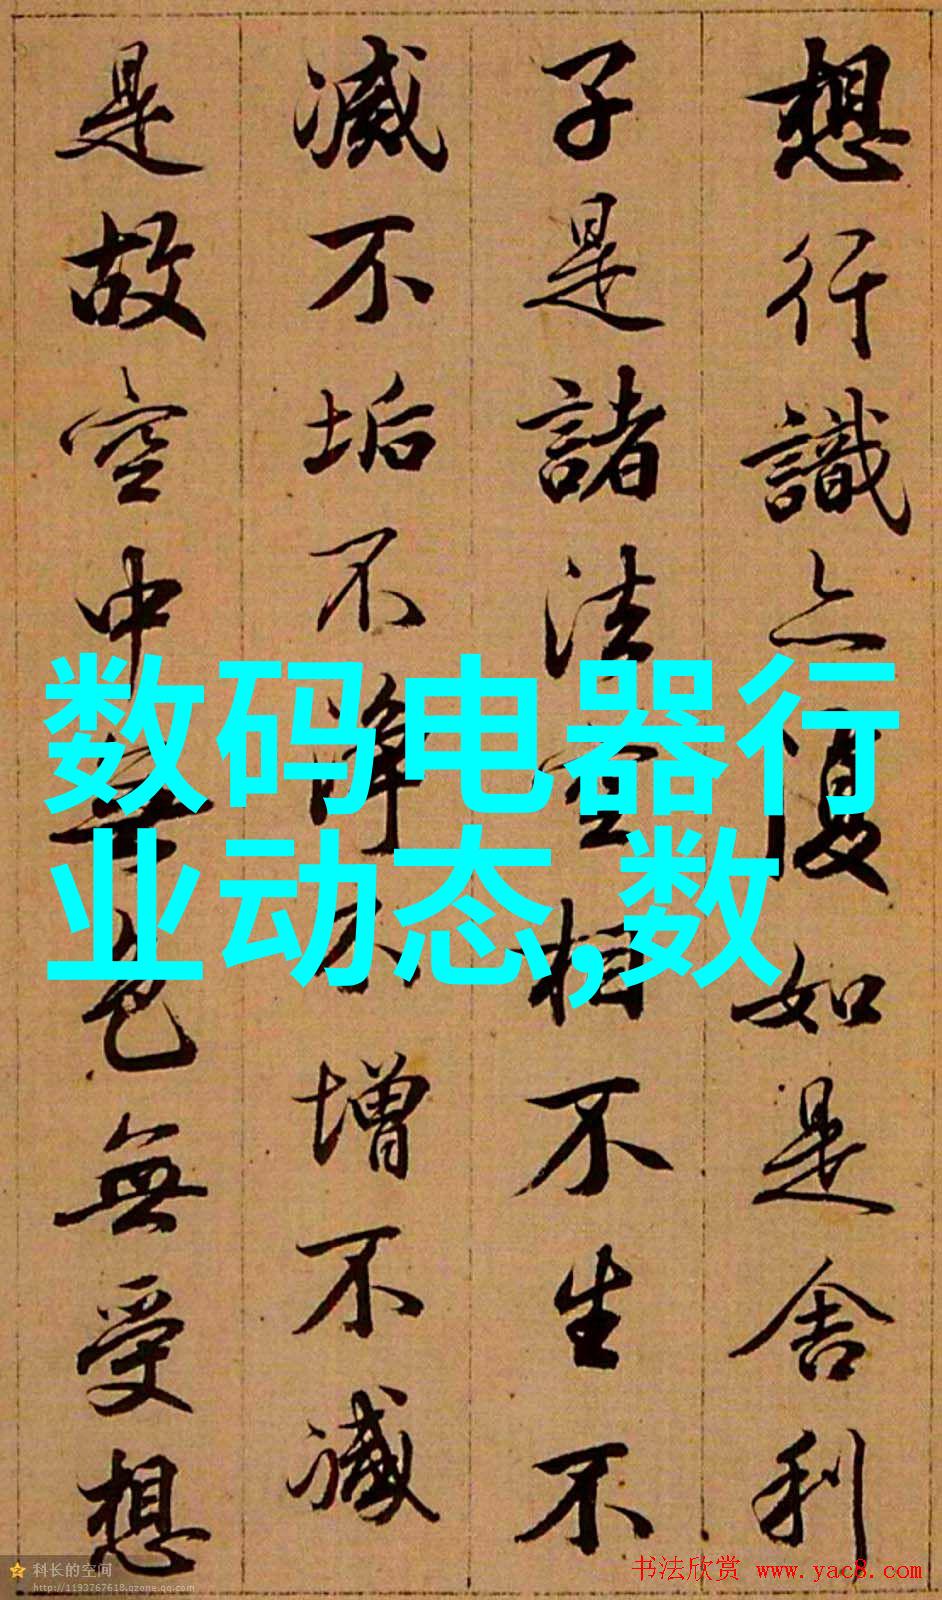 想行識亦復如是舍利
子是諸法空相不生不
滅不垢不净不增不減
是故空中無色無受想
数码电器行
业动态,数
科长的空间
http://1193767618.qzone.qq.com
书法欣赏 www.yac8.com